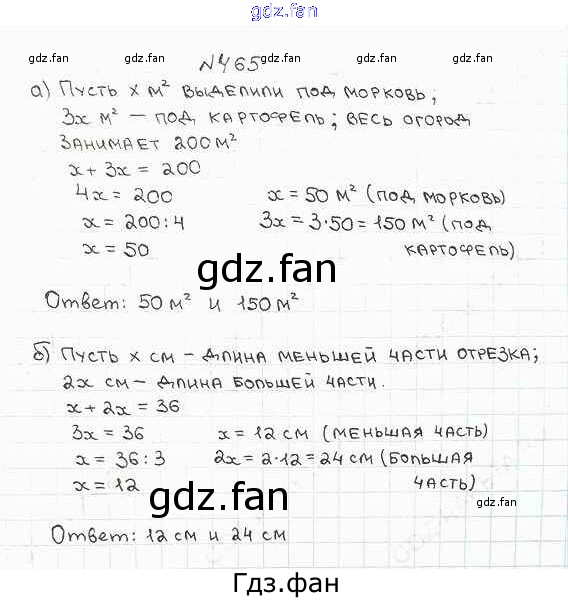 gdz.fan
gdz.fan gdz.fan gdz.fan
№465
а) Пусть x м² выделили под морковь;
3x м² – под картофель; весь огород
занимает 200 м²
gdz.fan gdz.fan gdz.fan
x + 3x = 200
4x = 200 x = 50 м² (под морковь)
x = 200:4 3x = 3·50 = 150 м² (под
x = 50 картофель)
gdz.fan
Ответ: 50 м² и 150 м²
gdz.fan gdz.fan gdz.fan
б) Пусть x см – длина меньшей части отрезка;
2x см – длина большей части.
x + 2x = 36
3x = 36 x = 12 см (меньшая часть)
x = 36:3 2x = 2·12 = 24 см (большая
x = 12 часть)
gdz.fan
gdz.fan gdz.fan
Ответ: 12 см и 24 см
Гдз.фан